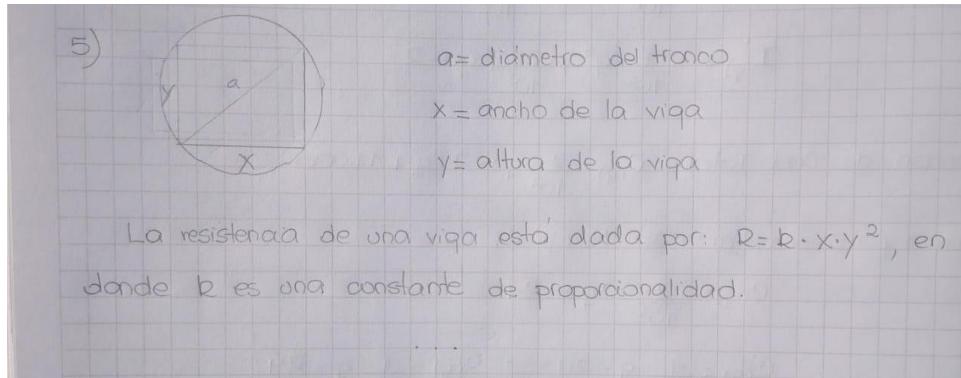 5)
a
y
x
a= diámetro del tronco
x= ancho de la viga
y= altura de la viga
La resistencia de una viga está dada por: R=k·x·y², en
donde k es una constante de proporcionalidad.
...